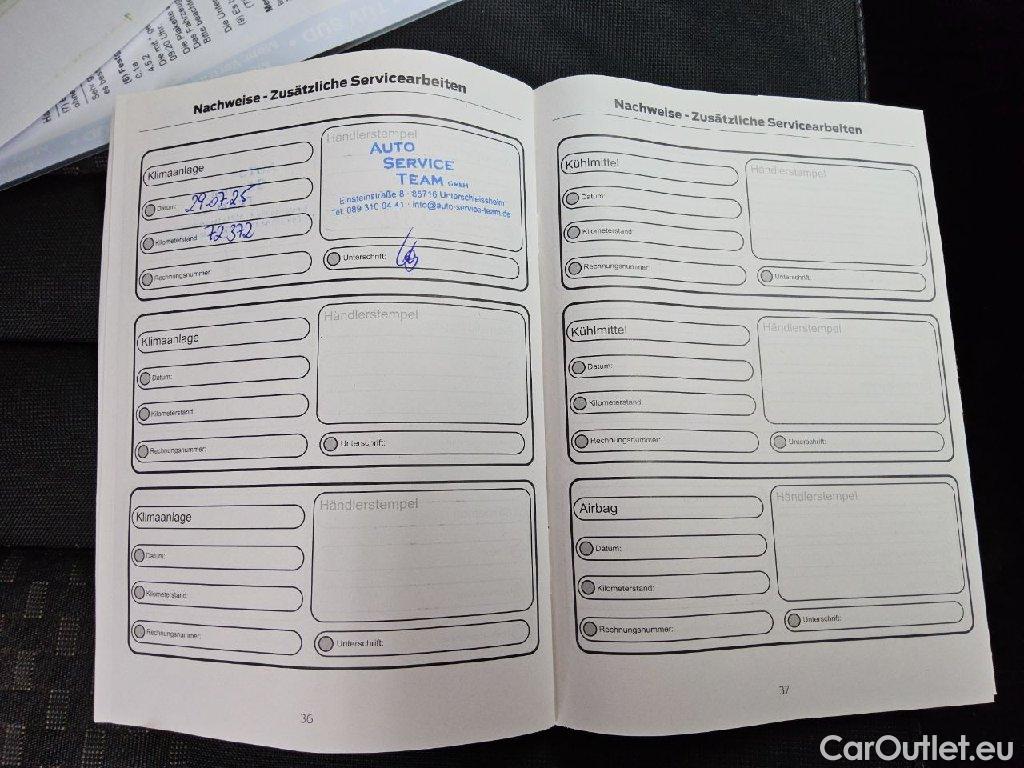 Nachweise - Zusätzliche Servicearbeiten
Klimaanlage
Datum: 29.07.25
Kilometerstand: 72 372
Rechnungsnummer:
Händlerstempel
AUTO
SERVICE
TEAM GMBH
Einsteinstraße 8 · 85716 Unterschleissheim
Tel. 089 310 04 41 · info@auto-service-team.de
Unterschrift:
Klimaanlage
Datum:
Kilometerstand:
Rechnungsnummer:
Händlerstempel
Unterschrift:
Klimaanlage
Datum:
Kilometerstand:
Rechnungsnummer:
Händlerstempel
Unterschrift:
36
Nachweise - Zusätzliche Servicearbeiten
Kühlmittel
Datum:
Kilometerstand:
Rechnungsnummer:
Händlerstempel
Unterschrift:
Kühlmittel
Datum:
Kilometerstand:
Rechnungsnummer:
Händlerstempel
Unterschrift:
Airbag
Datum:
Kilometerstand:
Rechnungsnummer:
Händlerstempel
Unterschrift:
37
CarOutlet.eu